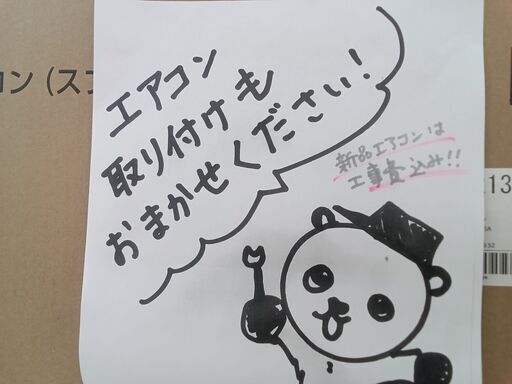 エアコン
取り付けも
おまかせください!
新品エアコンは
工事費込み!!
コン(スプ
13